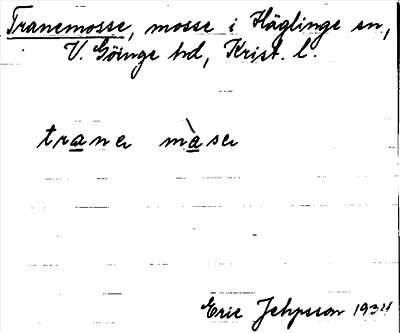 Tranemosse, mosse i Häglinge sn,
V. Göinge hd, Krist. l.
traner màser
Eric Jepsson 1934